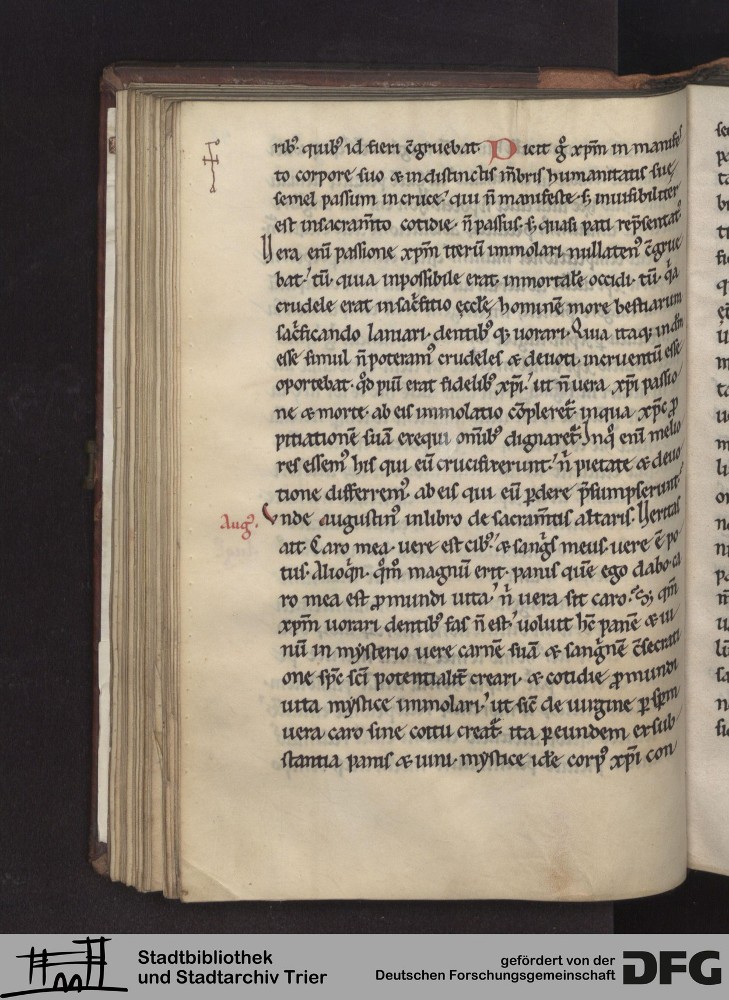 rib; quib; id fieri ɔ̄gruebat. Dicit gͦ xpm̄ in manifes
to corpore suo & in distinctis m̄bris humanitatis sue,
semel passum in cruce; qui n̄ manifeste. s; inuisibiliter
est in sacram̄to cotidie. n̄ passus. s; quasi pati rep̄sentat᷑
Vera eni̅ passione xpm̄ iteru̅ immolari nullaten᷒ ɔ̄grue
bat; tu̅. quia inpossibile erat. inmortale̅ occidi. tu̅. q̇a
crudele erat in sac̓ficio ęccl̅ę, homine̅ more bestiarum
sac̓ficando laniari. dentib; q; uorari. Quia itaq; in
esse simul n̄ poteram᷒ crudeles & deuoti. incruentu̅ esse
oportebat. qd̄ piu̅ erat fidelib; xp̄i; ut n̄ uera xp̄i passio
ne & morte. ab eis immolatio co̅pleret᷑. in qua xp̄c ꝓ
pitiatione̅ sua̅ exequi om̄ib; dignaret᷑. In qͦ eni̅ melio
res essem᷒ his qui eu̅ crucifixerunt; n̄ pietate & deuo
tione differrem᷒ ab eis qui eu̅ ꝑdere p̄sumpserunt.
Aug᷒. Vnde augustin᷒ in libro de sacram̄tis altaris. Veritas
ait. Caro mea. uere est cib᷒; & sang̓s meus. uere e̅ po
tus. Alioq̓n. qm̄ͦ magnu̅ erit. panis que̅ ego dabo. ca
ro mea est ꝓ mundi uita; n̓ uera sit caro. S; qm̄
xpm̄ uorari dentib; fas n̄ est; uoluit hc̄ pane̅ & ui
nu̅ in mysterio uere carne̅ sua̅ & sang̓ne̅ ɔ̄secrati
one sp̄c sc̄i potentialit᷑ creari. & cotidie ꝓ mundi
uita mystice immolari; ut sic̄ de uirgine ꝑ sp̄m
uera caro sine coitu creat᷑. ita ꝑ eundem ex sub
stantia panis & uini. mystice ide̅ corp᷒ xp̄i con
Stadtbibliothek
und Stadtarchiv Trier
gefördert von der
Deutschen Forschungsgemeinschaft
DFG